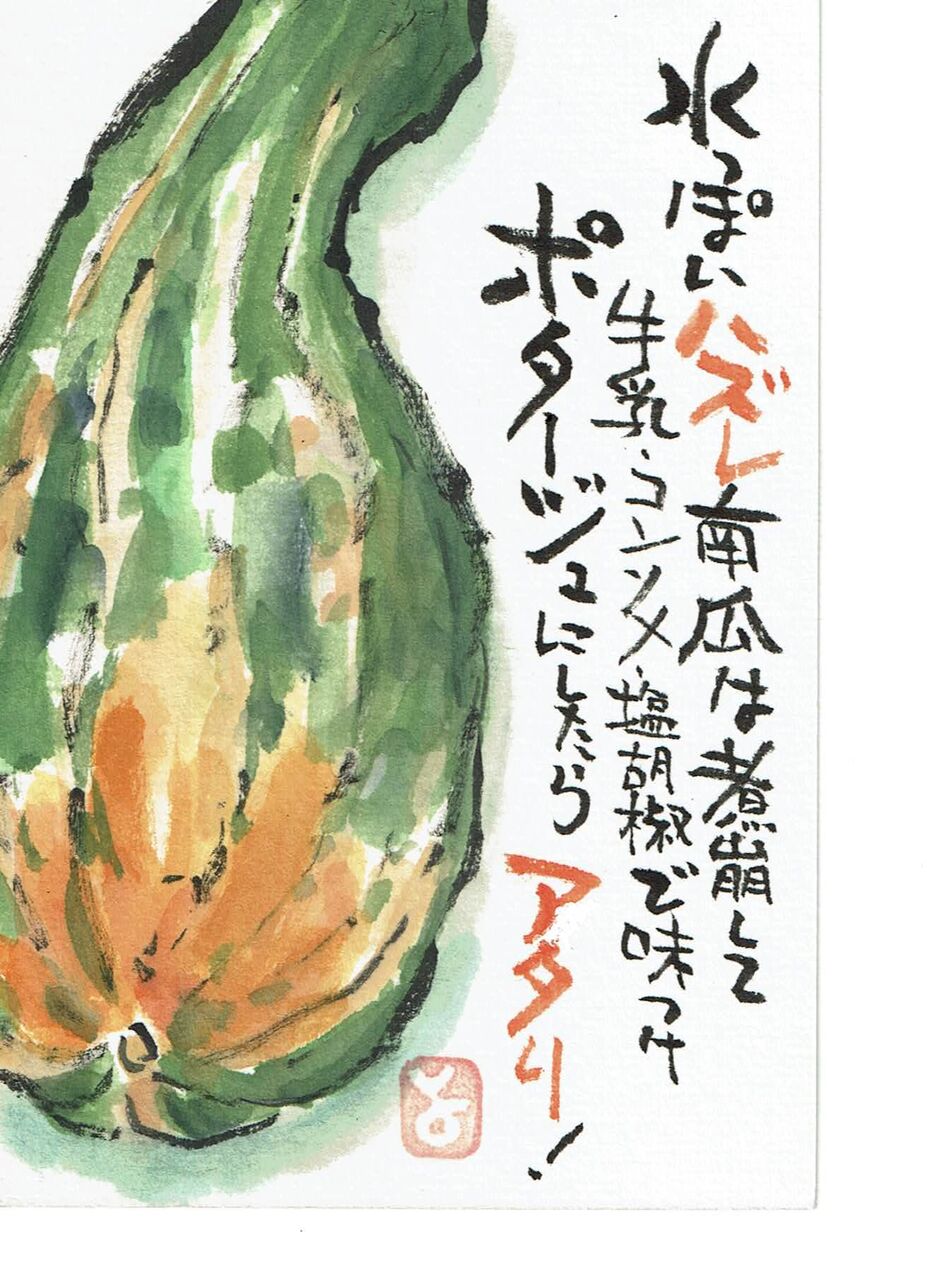 水っぽいハズレ南瓜は煮崩して
牛乳・コンソメ・塩胡椒で味つけ
ポタージュにしたら
アタリ!
と